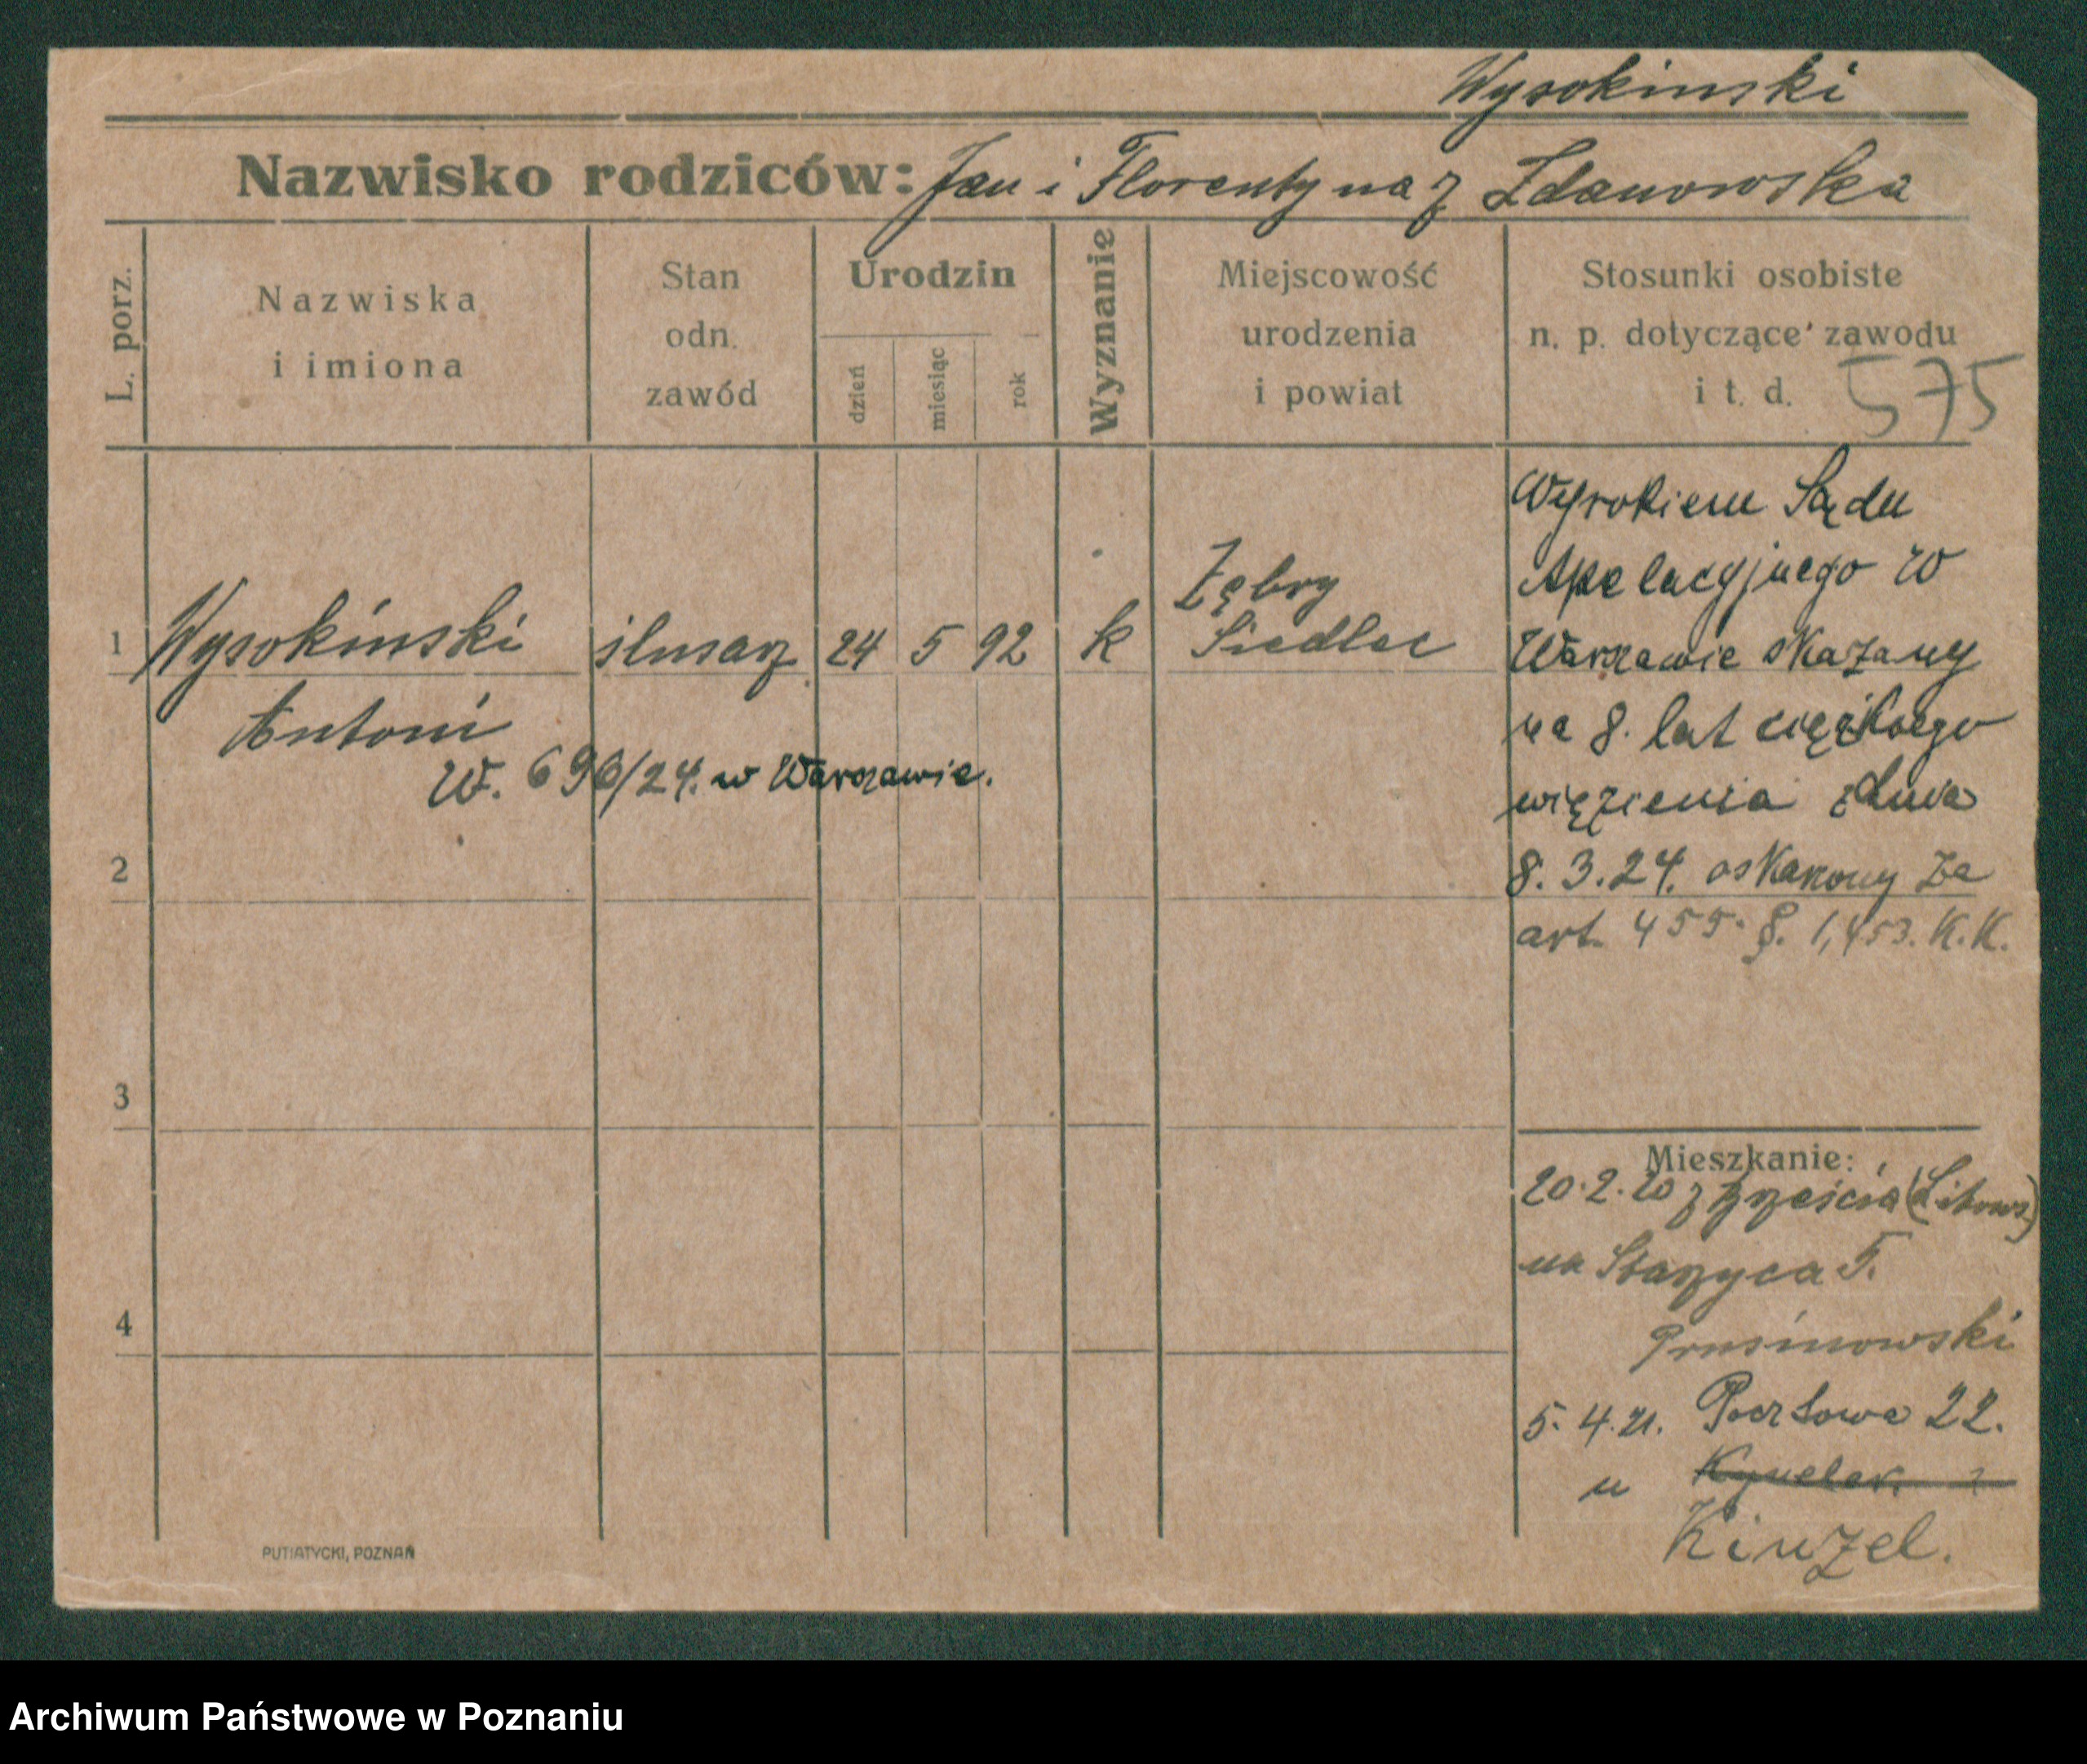 Wysokinski
Nazwisko rodziców: Jan i Florentyna z Zdanowska
L. porz.
Nazwiska
i imiona
Stan
odn.
zawód
Urodzin
dzień
miesiąc
rok
Wyznanie
Miejscowość
urodzenia
i powiat
Stosunki osobiste
n. p. dotyczące zawodu
i t. d.
575
1
Wysokinski
Antoni
ślusarz
24 5 92
k
Zębry
Siedlec
W. 696/24. w Warszawie.
Wyrokiem Sądu
Apelacyjnego w
Warszawie skazany
na 8. lat ciężkiego
więzienia z dnia
8. 3. 24. oskarżony za
art. 455. §. 1, 453. K.K.
2
3
4
Mieszkanie:
20. 2. 20 z Brześcia (Litows.)
na Starzyca 5.
Prusinowski
5. 4. 21. Pocztowa 22.
u
Kinzel.
PUTIATYCKI, POZNAŃ
Archiwum Państwowe w Poznaniu